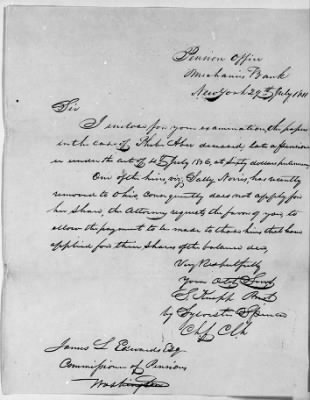 Pension Office
Mechanics Bank
New York 29th July
Sir
I enclose for your examination, the papers
in the case of deceased, late a pension
er under the act of 4th July 1836, at Sixty dollars per annum
One of the heirs, viz, Sally Norris, has recently
removed to Ohio, consequently does not apply for
her share the Attorney requests the favor of you, to
allow the payment to be made to those heirs that have
applied for their shares of the balance due,
Very Respectfully
Your Obt Servt
Prest
by Sylvester Spencer
Chf Clk
James L Edwards Esq
Commissioner of Pensions
Washington